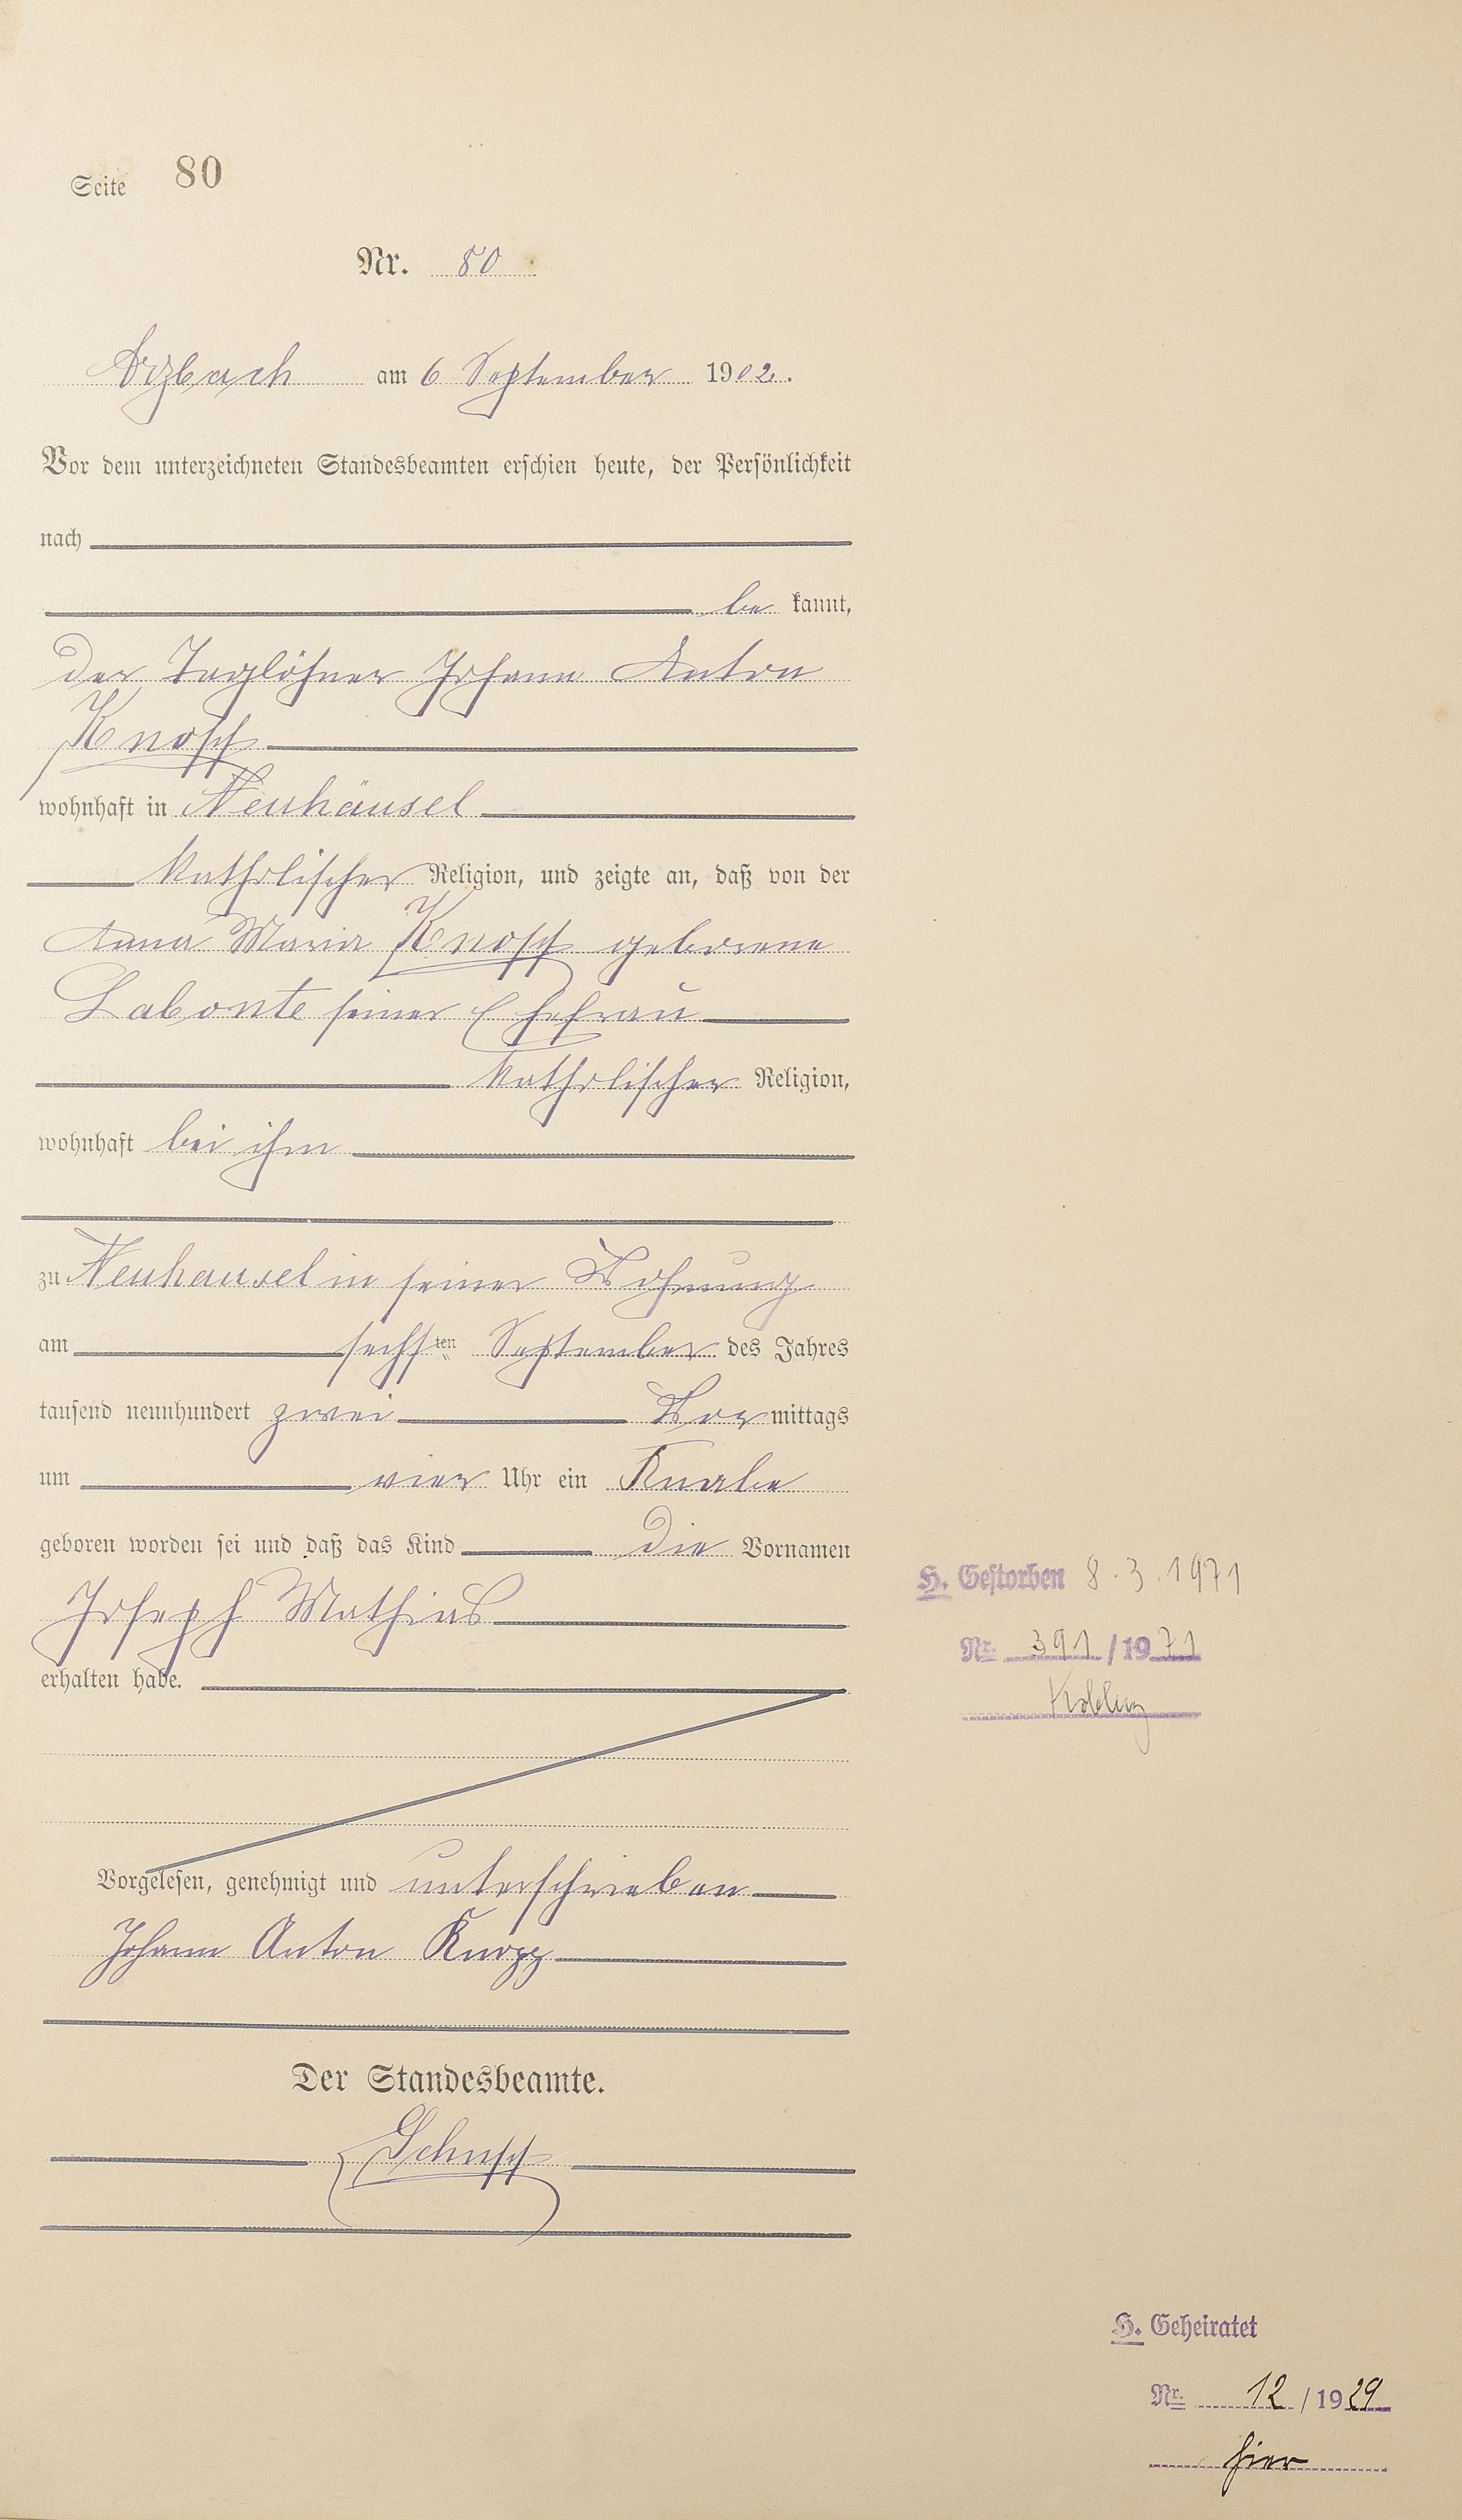 Seite 80
Nr. 80
Arzbach am 6 September 1902.
Vor dem unterzeichneten Standesbeamten erschien heute, der Persönlichkeit
nach
be kannt,
der Taglöhner Johann Anton
Knopp
wohnhaft in Neuhäusel
katholischer Religion, und zeigte an, daß von der
Anna Maria Knopp geborene
Labonte seiner Ehefrau
katholischer Religion,
wohnhaft bei ihm
zu Neuhäusel in seiner Wohnung
am sechsten September des Jahres
tausend neunhundert zwei Vormittags
um vier Uhr ein Knabe
geboren worden sei und daß das Kind die Vornamen
Joseph Mathias
erhalten habe.
Vorgelesen, genehmigt und unterschrieben
Johann Anton Knopp
Der Standesbeamte.
Schupp
H. Gestorben 8.3.1971
Nr. 391/1971
Koblenz
H. Geheiratet
Nr. 12/1929
hier